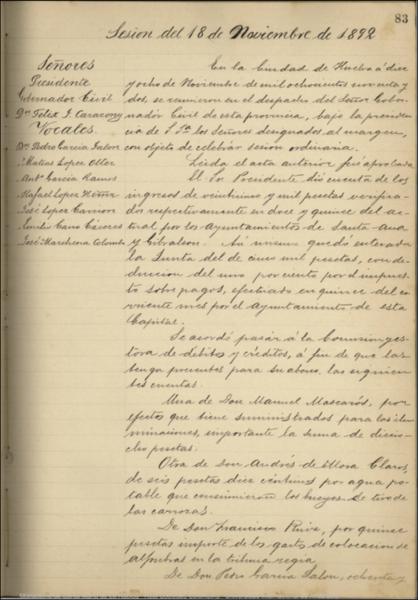 83
Sesion del 18 de Noviembre de 1892
Señores
Presidente
Gobernador Civil
Dn. Felix J. Caracony
Vocales
Dn. Pedro García Jalon
" Matias Lopez Oller
" Antº García Ramos
" Rafael Lopez
" José Lopez Carrion
" Cano Cáceres
" José Marchena Colombo
En la Ciudad de Huelva á diez
y ocho de Noviembre de mil ochocientos noventa y
dos, se reunieron en el despacho del Señor Gober-
nador Civil de esta provincia, bajo la presiden-
cia de S. Sª. los Señores designados al margen,
con objeto de celebrar sesion ordinaria.
Leida el acta anterior fué aprobada
El Sr. Presidente dió cuenta de los
ingresos de veintiuno y mil pesetas verifica-
dos respectivamente en doce y quince del ac-
tual, por los Ayuntamientos de Santa Ana
y Gibraleon. Asi mismo quedó enterada
la Junta del de cinco mil pesetas, con de-
duccion del uno por ciento por el impues-
to sobre pagos, efectuado en quince del co-
rriente mes por el Ayuntamiento de esta
Capital.
Se acordó pasar á la Comision ges-
tora de débitos y créditos, á fin de que las
tenga presentes para su abono, las siguien-
tes cuentas.
Una de Don Manuel Mascarós, por
efectos que tiene suministrados para las ilu-
minaciones, importante la suma de diecio-
cho pesetas.
Otra de Don Andrés de Mora Claros,
de seis pesetas diez céntimos por agua po-
table que consumieron los bueyes de tiro de
las carrozas.
De Don Francisco Ruiz, por quince
pesetas importe de los gastos de colocacion de
alfombras en la tribuna regia.
De Don Pedro García Jalon, ochenta y